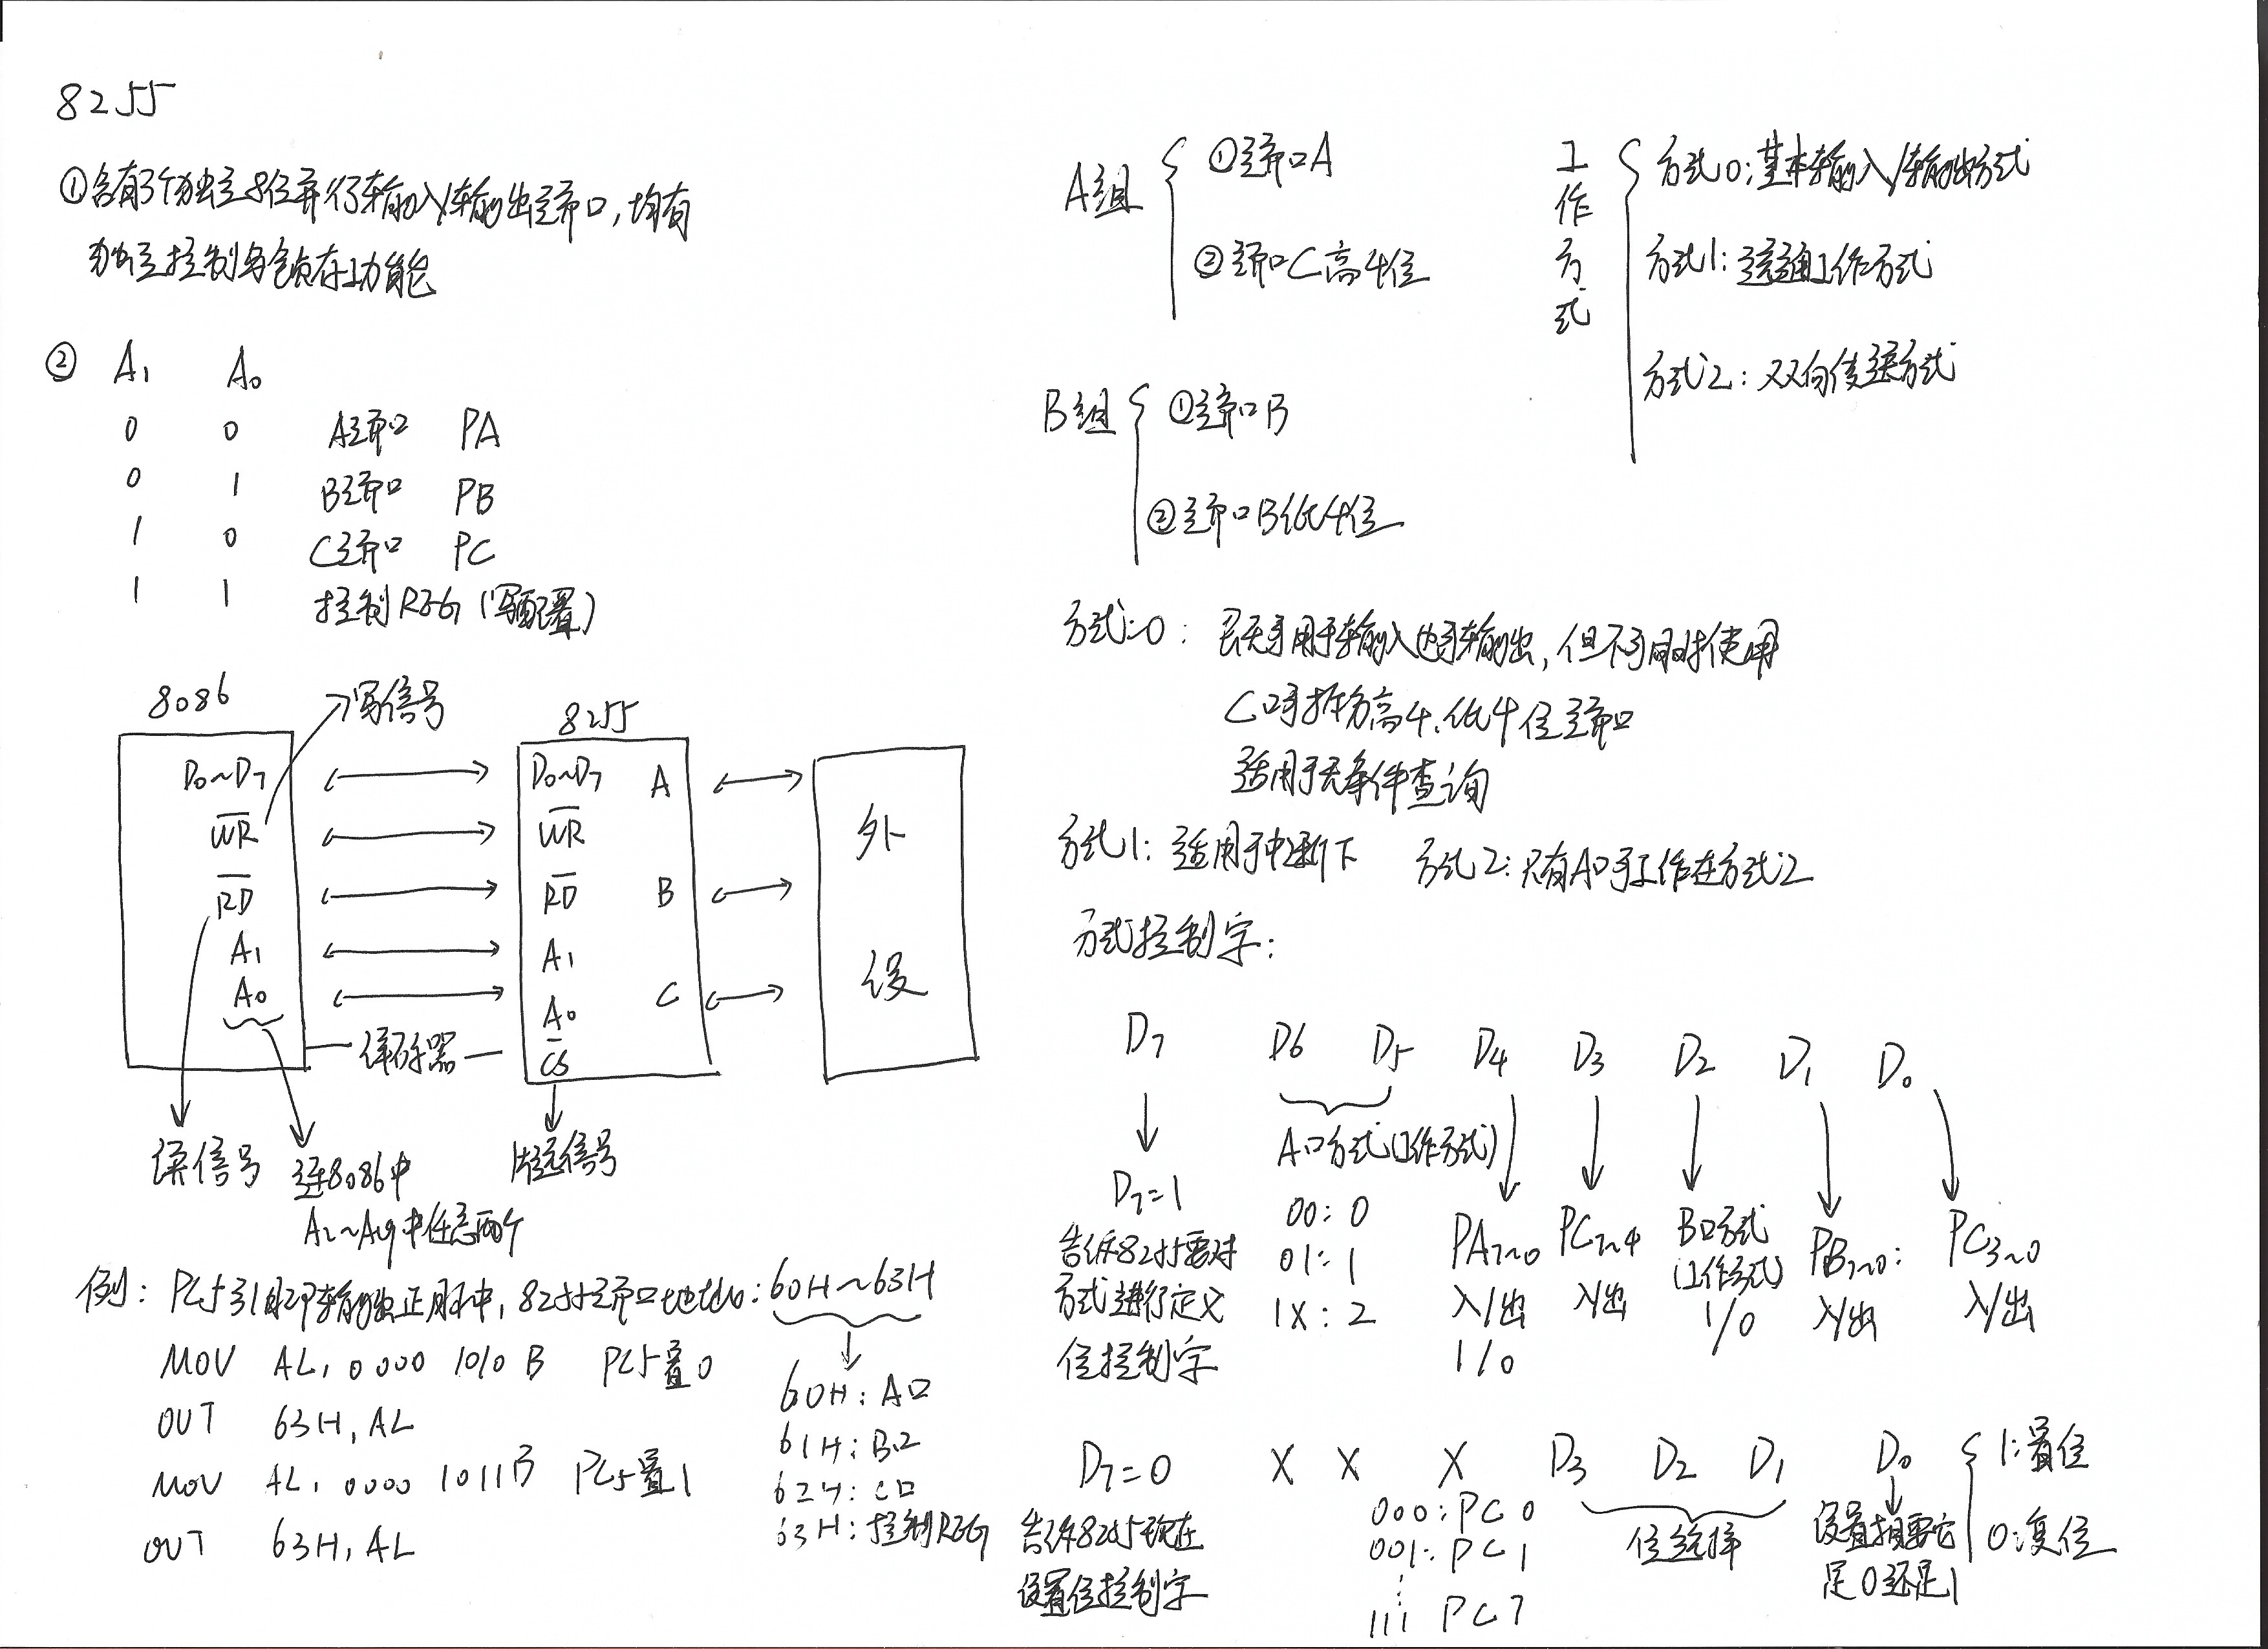 8255
①含有3个独立8位并行输入/输出端口，均有
独立控制与锁存功能
② A₁ A₀
0 0 A端口 PA
0 1 B端口 PB
1 0 C端口 PC
1 1 控制REG（写配置）
8086
写信号
8255
D₀~D₇
D₀~D₇ A
W̅R̅
W̅R̅
R̅D̅
R̅D̅ B
A₁
A₁
A₀
A₀ C
译码器
C̅S̅
外
设
读信号
连8086中
A₂~A₁₉中任意两个
片选信号
例：PC5引脚输出正脉冲，8255端口地址：60H~63H
MOV AL, 0000 1010 B PC5置0
OUT 63H, AL
MOV AL, 0000 1011B PC5置1
OUT 63H, AL
60H：A口
61H：B口
62H：C口
63H：控制REG
A组
①端口A
②端口C高4位
B组
①端口B
②端口B低4位
工作方式
方式0：基本输入/输出方式
方式1：选通工作方式
方式2：双向传送方式
方式0：
可用于输入也可输出，但不可同时使用
C口可拆为高4、低4位端口
适用于无条件查询
方式1：适用于中断下 方式2：只有A口可工作在方式2
方式控制字：
D₇ D6 D₅ D₄ D₃ D₂ D₁ D₀
D₇=1
告诉8255要对
方式进行定义
位控制字
A口方式（工作方式）
00：0
01：1
1X：2
PA₇~₀
入/出
1/0
PC₇~₄
入/出
B口方式
（工作方式）
1/0
PB₇~₀：
入/出
PC₃~₀
入/出
D₇=0 X X X D₃ D₂ D₁ D₀
告诉8255现在
设置位控制字
000：PC0
001：PC1
⋮
111 PC7
位选择
是0还是1
1：置位
0：复位